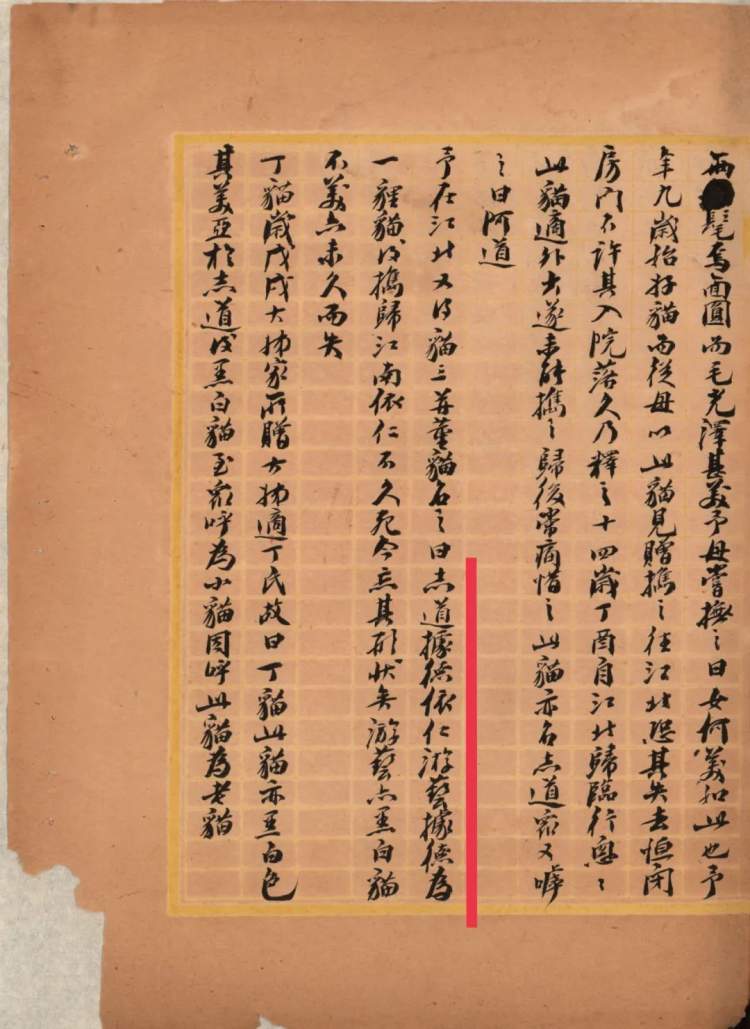 兩髦烏面圓而毛光澤甚美予母嘗撫之曰女何美如此也予
年九歲始好貓而從母以此貓見贈攜之往江北恐其失去恒閉
房門不許其入院落久乃釋之十四歲丁酉自江北歸臨行匆匆
此貓適外去遂未能攜之歸後常痛惜之此貓亦名志道家又呼
之曰阿道
予在江北又得貓三并董貓名之曰志道據德依仁游藝據德為
一貍貓後攜歸江南依仁不久死今忘其形狀矣游藝亦黑白貓
不美亦未久而失
丁貓歲戊戌大姊家所贈大姊適丁氏故曰丁貓此貓亦黑白色
其美亞於志道後黑白貓至家呼為小貓因呼此貓為老貓